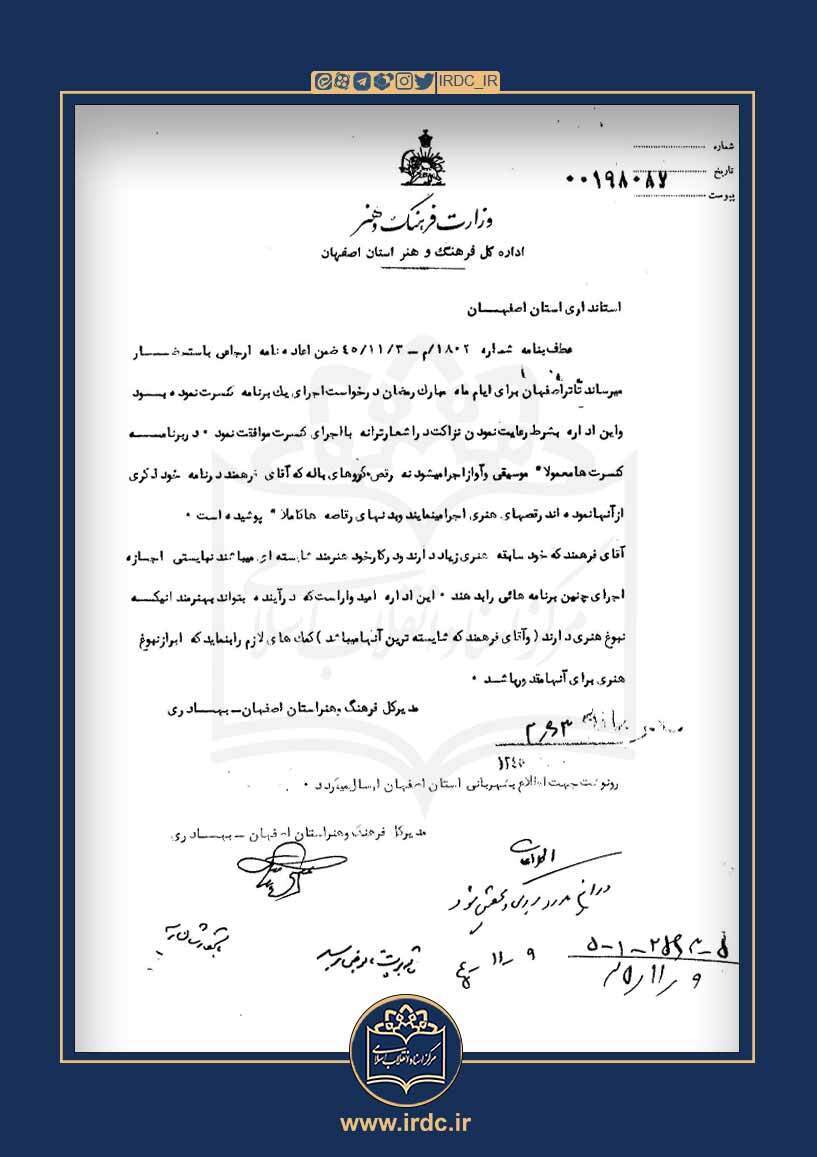 IRDC_IR
شماره
تاریخ
پیوست
۰۰۱۹۸۰۸۷
وزارت فرهنگ و هنر
اداره کل فرهنگ و هنر استان اصفهان
استانداری استان اصفهان
عطف بنامه شماره ۱۸۰۲/م – ۴۵/۱۱/۳ ضمن اعاده نامه ارجاعی باستحضار
میرساند تآتر اصفهان برای ایام ماه مبارک رمضان درخواست اجرای یک برنامه کنسرت نموده بود
واین اداره بشرط رعایت نمودن نزاکت در اشعار ترانه با اجرای کنسرت موافقت نمود ۰ در برنامه
کنسرت ها معمولا" موسیقی وآواز اجرا میشود نه رقص گروهای باله که آقای فرهمند در نامه خود ذکری
از آنها نموده اند رقصهای هنری اجرا مینمایند وبدنهای رقاصه ها کاملا" پوشیده است ۰
آقای فرهمند که خود سابقه هنری زیاد دارند ودر کار خود هنرمند شایسته ای میباشند نبایستی اجازه
اجرای چنین برنامه هائی را بدهند ۰ این اداره امیدوار است که در آینده بتواند بهنرمندانیکه
نبوغ هنری دارند ( وآقای فرهمند که شایسته ترین آنها میباشد ) کمک های لازم را بنماید که ابراز نبوغ
هنری برای آنها مقدور باشد ۰
مدیرکل فرهنگ وهنر استان اصفهان – بهادری
رونوشت جهت اطلاع بشهربانی استان اصفهان ارسال میگردد ۰
مدیرکل فرهنگ وهنر استان اصفهان – بهادری
اطلاعات
در این مورد رسیدگی و تحقیق شود
۹ – ۱۱ –
۹ ر ۱۱ ر ۴۵
مرکز اسناد انقلاب اسلامی
www.irdc.ir